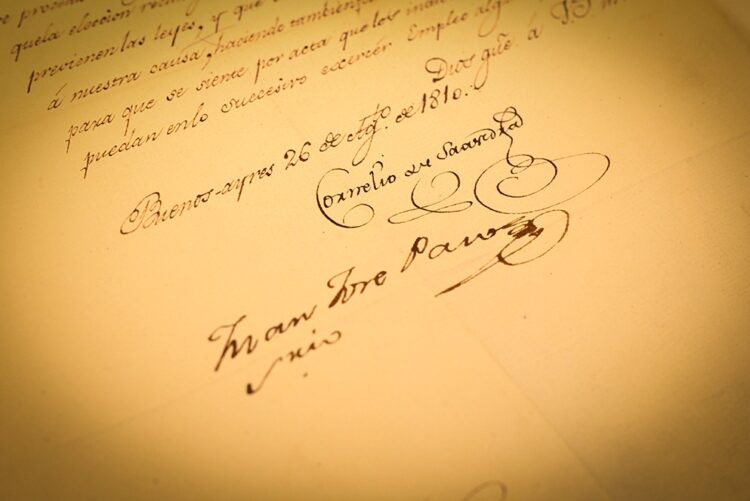 quela eleccion
previenen las leyes, y que
á nuestra causa, haciendo tambien
para que se siente por acta que los
puedan enlo sucesivo exercér Empleo
Dios gũe. á
Buenos-ayres 26 de Agto. de 1810.
Cornelio de Saavedra
Juan Jose Passo
Srio